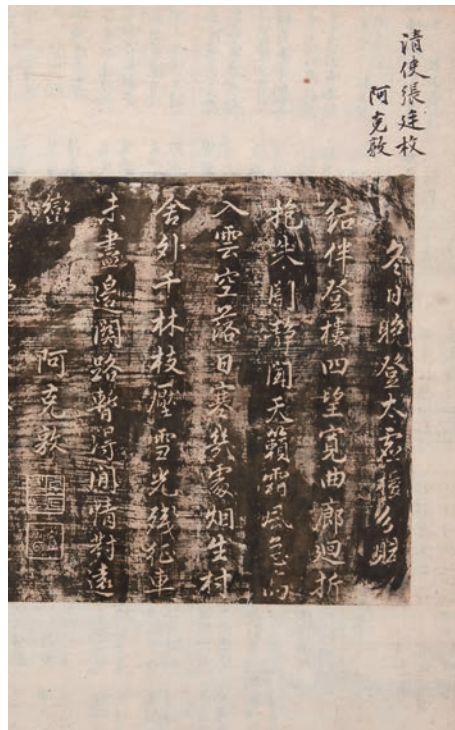 清使張廷枚
阿克敦
冬日晚登太虛樓分
結伴登樓四望寬曲廊迴折
抱朱闌靜聞天籟霜風急
入雲空落日寒幾處烟生村
舍外千林枝壓雪光殘軺車
未盡邊關路暫得閒情對遠
巒
阿克敦